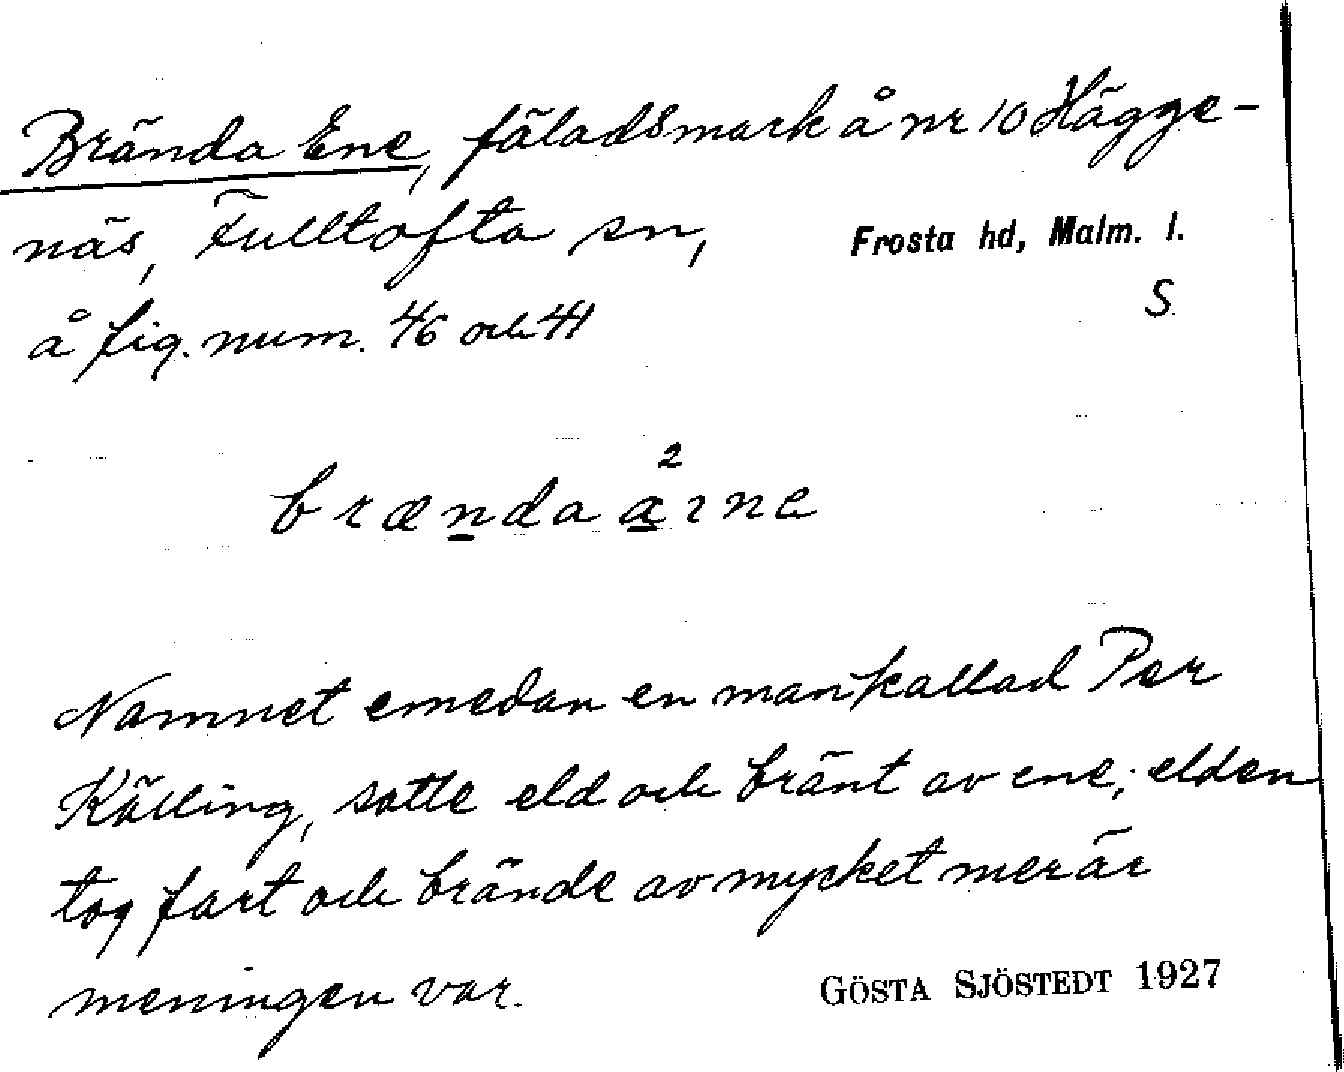 Brända Ene, fäladsmark å nr 10 Hägge-
näs, Fulltofta sn, Frosta hd, Malm. l.
S.
å fig. num. 46 och 41
2
brændaaɪne
Namnet emedan en man kallad Per
Källing, satte eld och bränt av ene; elden
tog fart och brände av mycket mer är
meningen var.
GÖSTA SJÖSTEDT 1927